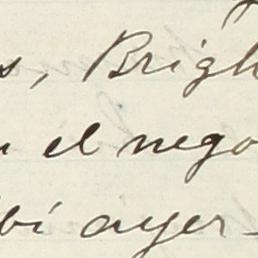 s, Brigh
n el nego
bi ayer-